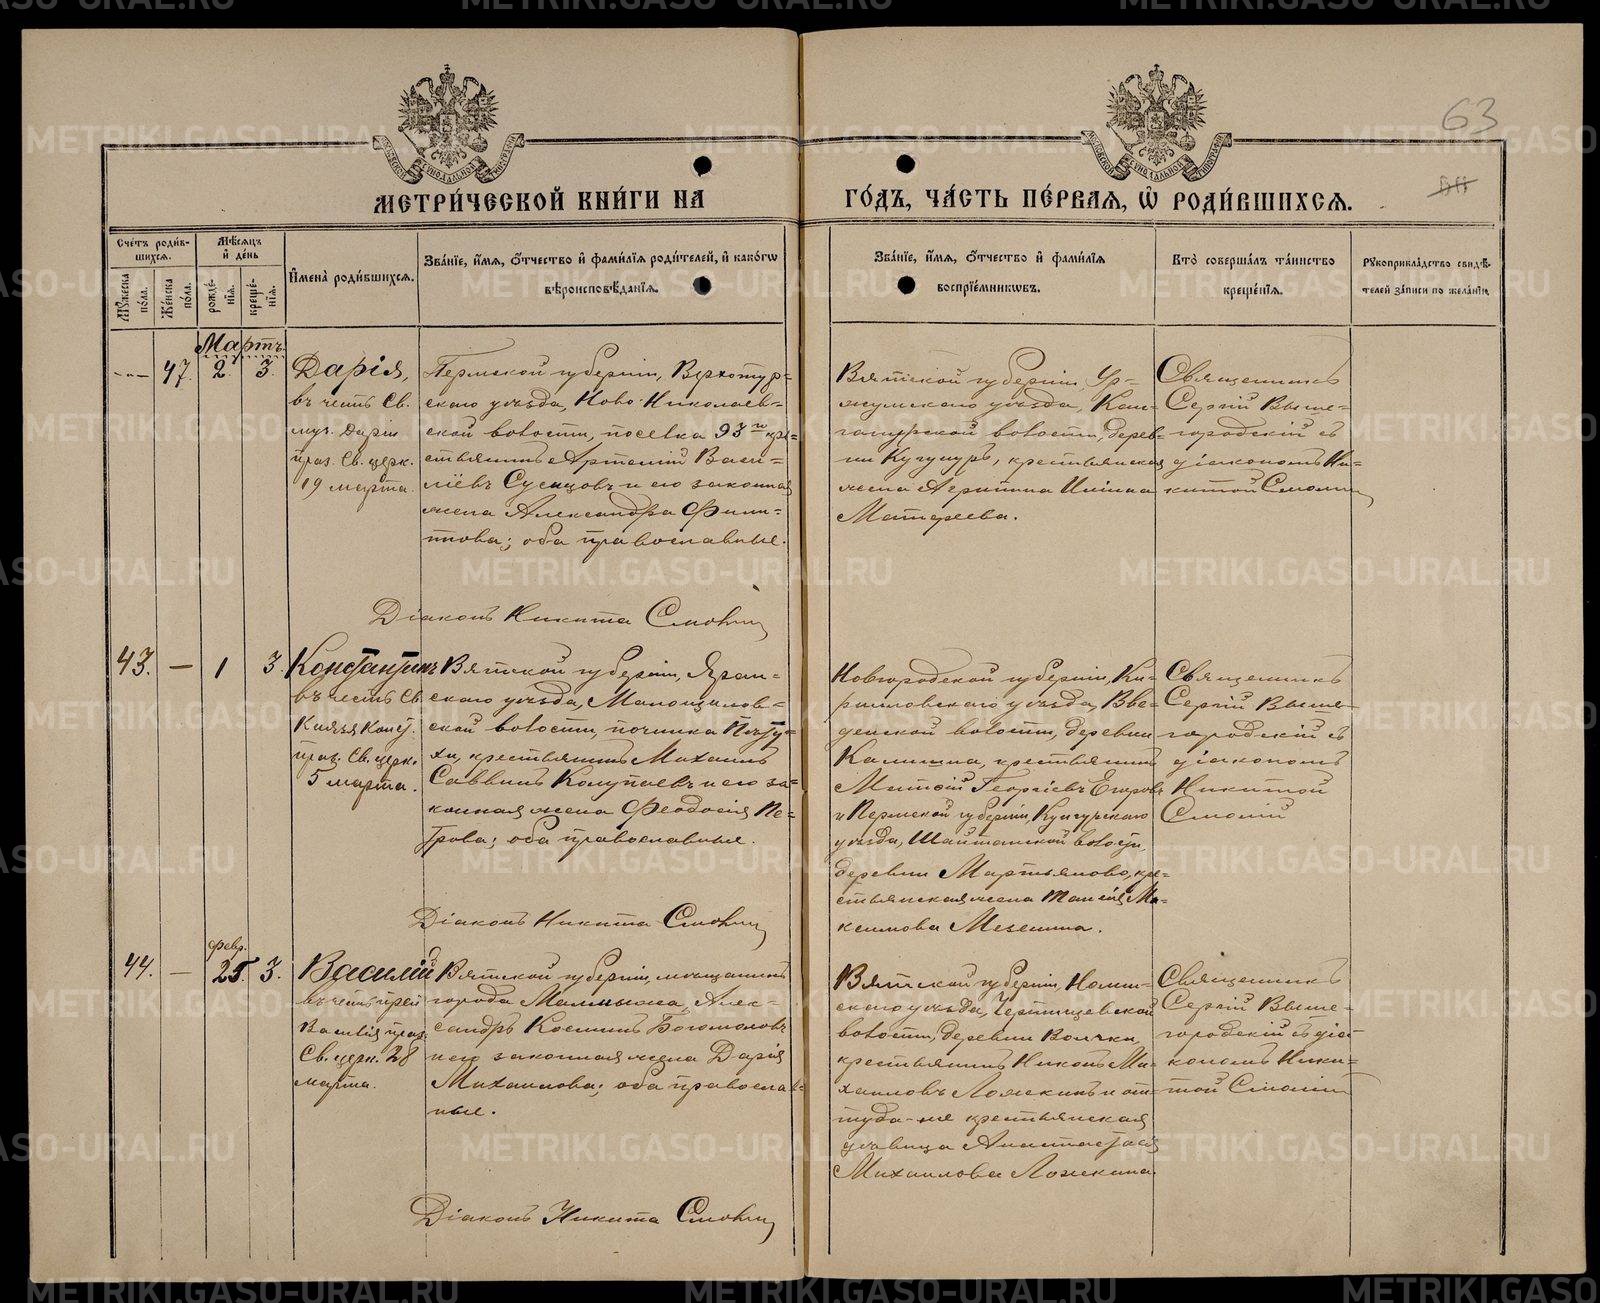 63
МЕТРИ́ЧЕСКОЙ КНИ́ГИ НА
ГО́ДЪ, ЧА́СТЬ ПЕ́РВАЯ, Ѡ҆ РОДИ́ВШИХСЯ.
Сче́тъ роди́в-
шихся.
Мѣ́сяцъ
и҆ де́нь
Мꙋ́жеска
по́ла.
Же́нска
по́ла.
рожде́-
нїя.
креще́-
нїя.
И҆мена̀ роди́вшихся.
Зва́нїе, и҆́мя, ѻ҆́тчество и҆ фами́лїя роди́телей, и҆ како́гѡ
вѣроисповѣ́данїя.
Зва́нїе, и҆́мя, ѻ҆́тчество и҆ фами́лїя
воспрїе́мникѡвъ.
Кто̀ соверша́лъ та́инство
креще́нїя.
Рꙋкоприкла́дство свидѣ́-
телей за́писи по жела́нїю.
Мартъ.
47. 2. 3.
Дарія,
въ честь Св.
муч. Даріи
праз. Св. церк.
19 марта.
Пермской губерніи, Верхотур-
скаго уѣзда, Ново-Николаев-
ской волости, поселка 93го кре-
стьянинъ Артемій Васи-
ліевъ Сунцовъ и его законная
жена Александра Филип-
пова; оба православные.
Вятской губерніи, Ур-
жумскаго уѣзда,
волости, дерев-
ни Кугунуръ, крестьянская
жена Агрипина
Матфеева.
Священникъ
Сергій Выше-
городскій съ
діакономъ Ни-
китой Смолин
Діаконъ Никита Смолин
43. — 1 3.
Константинъ
въ честь Св.
Князя Конст.
праз. Св. церк.
5 марта.
Вятской губерніи, Яран-
скаго уѣзда, Малощегло
ской волости, починка Пѣту-
хи, крестьянинъ Михаилъ
Саввинъ Колупаевъ и его за-
конная жена Феодосія Пе-
трова; оба православные.
Новгородской губерніи, Ки-
рилловскаго уѣзда, Вве-
денской волости, деревни
Калинина, крестьянинъ
Митрофанъ Георгіевъ Егоровъ
и Пермской губерніи, Кунгурскаго
уѣзда, Шайтанской волости,
деревни Мартьяново, кре-
стьянская жена Таисія Ма-
ксимова Мезенина.
Священникъ
Сергій Выше-
городскій съ
діакономъ
Никитой
Смолин
Діаконъ Никита Смолин
февр.
44. — 25. 3.
Василій
въ честь преп.
Василія праз.
Св. церк. 28
марта.
Вятской губерніи, мѣщанинъ
города Малмыжа, Алек-
сандръ Косминъ Богомоловъ
и его законная жена Дарія
Михаилова; оба православ-
ные.
Вятской губерніи, Нолин-
скаго уѣзда,
волости, деревни Волчки,
крестьянинъ Никонъ Ми-
хаиловъ Ложкинъ и от-
туда-же крестьянская
дѣвица Анастасія
Михаилова Ложкина.
Священникъ
Сергій Выше-
городскій съ діа-
кономъ Ники-
той Смолин
Діаконъ Никита Смолин
METRIKI.GASO-URAL.RU